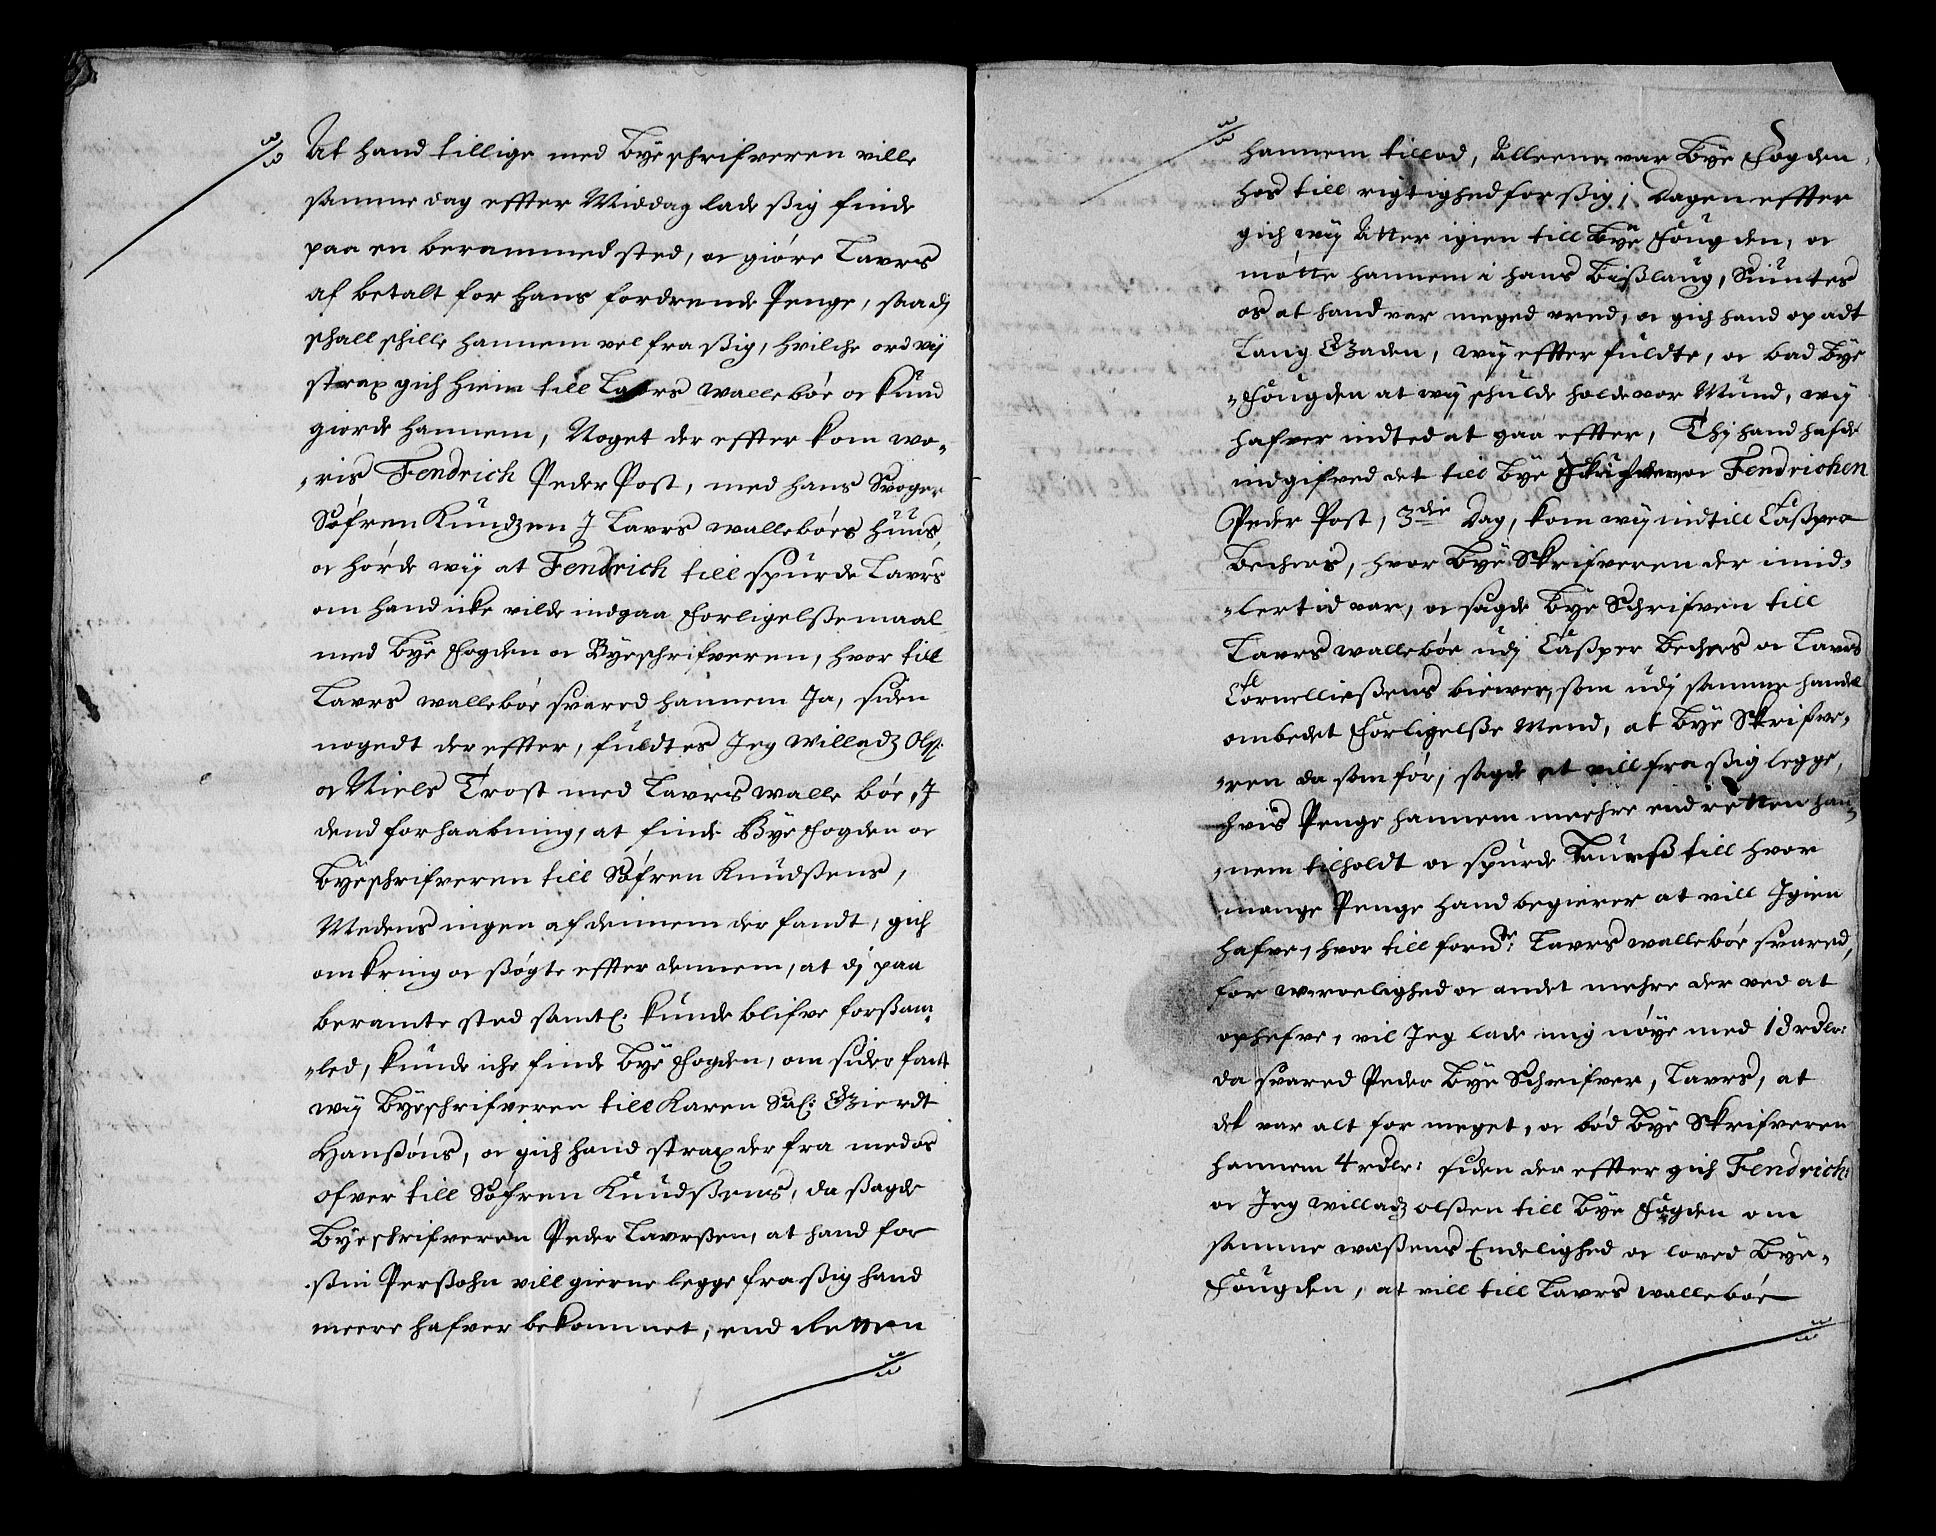 At hand tillige med Byeschrifveren ville
samme dag effter Middag lade ßig finde
paa en berammed sted, oc giöre Lavrs
af betalt for hans fordrende Penge, saa dj
schall schille hannem vel fra ßig, hvilche ord vij
strax gich hiem till Lavrs wallebör oc kund
giorde hannem, Noget der effter kom wo-
-ris Fendrich Peder Post, med hans Svoger
Söfren Kundzen J Lavrs wallebörs Huus,
oc hörde wij at Fendrich till spurde Lavrs
om hand icke vilde indgaa Forligelßemaal
med Bye Fogden oc Byeschrifveren, hvor till
Lavrs wallebör svared hannem Ja, siden
nogedt der effter, fuldtes Jeg Willadz Olß:
oc Niels Trost med Lavrs walle bör, J
dend forhaabning, at finde Bye Fogden oc
Byeschrifveren till Söfren Knudßens,
Medens ingen af dennem der fandt, gich
omkring oc ßögte effter dennem, at dj paa
beramte sted samtl: kunde blifve forßam-
-led, kunde iche finde Bye Fogden, om sider fant
wij Byeschrifveren till Karen Sal: Gierdt
Hanßöns, oc gich hand strax der fra med os
ofver till Söfren Knudßens, da ßagde
Byeschrifveren Peder Lavrßen, at hand for
ßin Perßohn vill gierne legge fra ßig hand
meere hafver bekommet, end Retten
hannem tillod, Alleene var Bye Fogden
hos till rigtighed for ßig; Dagen effter
gich wij Atter igien till Bye Fougden, oc
mötte hannem i hans Bißlaug, Siuntes
os at hand var meged vred, oc gich hand op adt
Lang Gaden, wij effter fuldte, oc bad Bye
-Fougden at wij schulde holde vor Mund, wij
hafver indted at gaa effter, Thj hand hafde
indgifved det till Bye Skrifveren oc Fendrichen
Peder Post, 3die Dag, kom wij ind till Caßper
Bechers, hvor Bye Skrifveren der imid-
-lertid var, oc sagde Bye Schrifven till
Lavrs wallebör udj Caßper Bechers oc Lavrs
Cornelließens biewer, som udj samme handel
ombedet Forligelße Mend, at Bye Skrifve-
-ren da som för, sagde at vill fra ßig legge,
hvis Penge hannem meehre end retten han-
-nem tilholdt oc spurde Laurß till hvor
mange Penge hand begierer at vill Jgien
hafve, hvor till fornde: Lavrs wallebör svared,
for wroelighed oc andet mehre der ved at
ophefve, vil Jeg lade mig nöye med 18 rdlr:
da svared Peder Bye Schrifver, Lavrs, at
det var alt for meget, oc böd Bye Skrifveren
hannem 4 rdlr: siden der effter gich Fendrich:
oc Jeg willadz olßen till Bye Fogden om
samme waßens Endelighed oc loved Bye-
Fougden, at vill till Lavrs wallebör